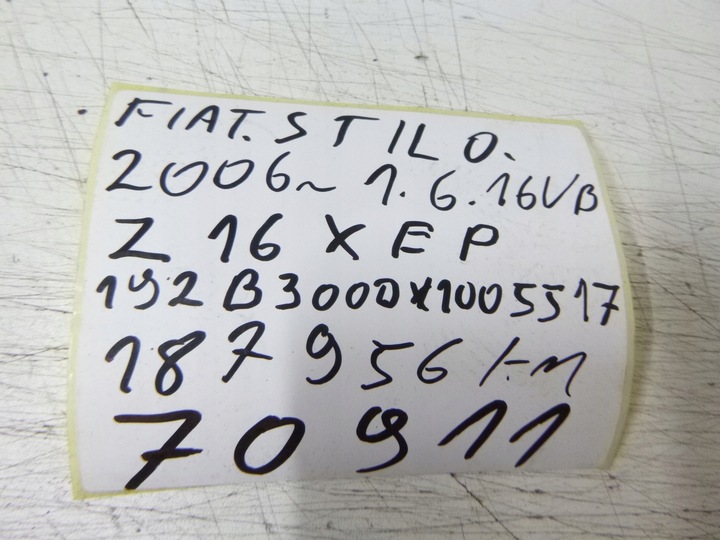 FIAT. STILO.
2006~ 1.6.16VB
Z 16 X E P
192 B3000X1005517
187956 km
70911